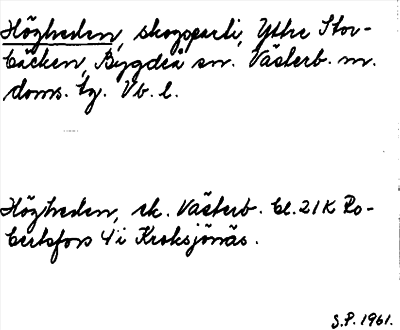 Högheden, skogsparti, Yttre Stor-
bäcken, Bygdeå sn. Västerb. n.
doms. tg. Vb. l.
Högheden, ek. Västerb. bl. 21K Ro-
bertsfors 4 i Kroksjönäs.
S.P. 1961.